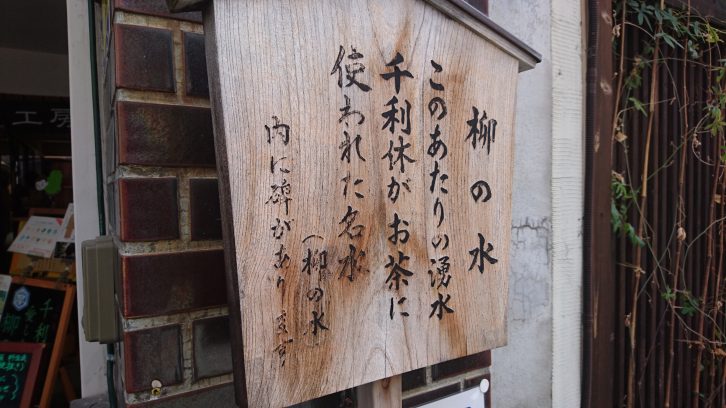 柳の水
このあたりの湧水
千利休がお茶に
使われた名水
（柳の水）
内に碑があります
工房
千利
柳